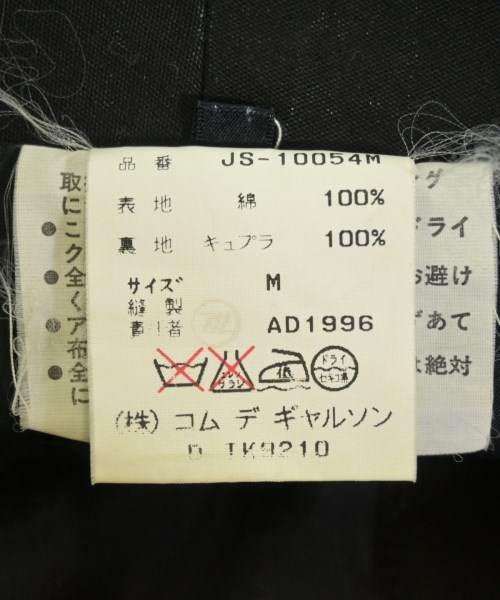 品番 JS-10054M
表地 綿 100%
裏地 キュプラ 100%
サイズ M
縫製
責任者 AD1996
エンソ
サラシ
低
ドライ
セキユ系
(株) コム デ ギャルソン
D TK9210
取
にこ
ク
全く
ア
布
全に
グ
ドライ
お避け
ずあて
は絶対